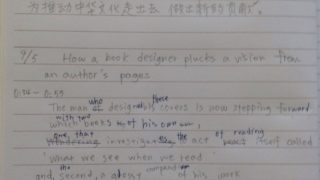 为推动中华文化走出去 做出新的贡献。
9/5 How a book designer plucks a vision from
an author's pages
0:34 - 0:55
The man who designed these covers is now stepping forward
with two books of his own,
one, that investigates the act of reading itself called
what we see when we read
and, the second, a compendium of his work